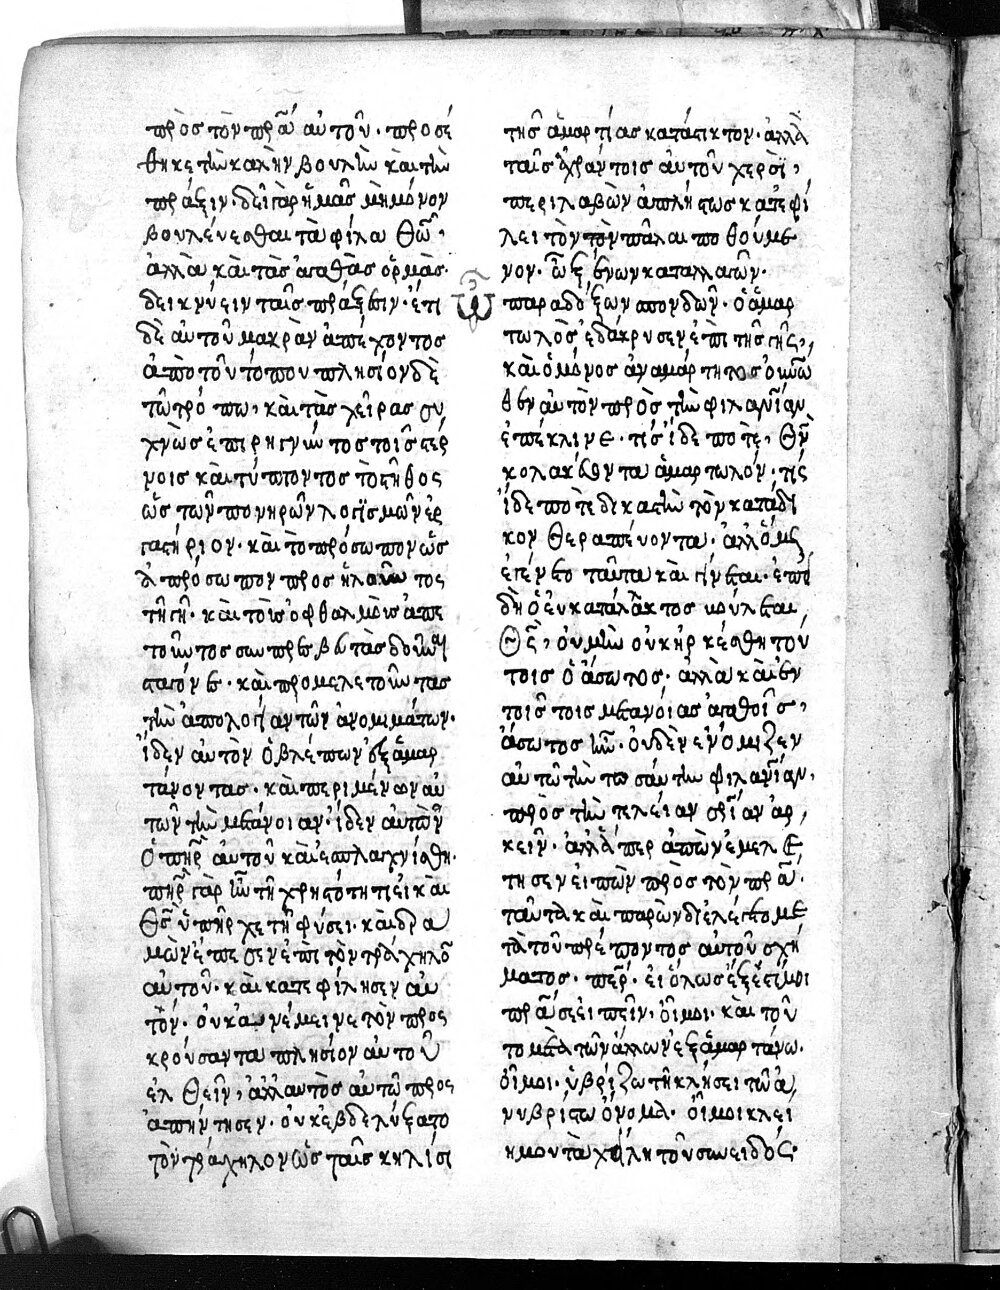 πρὸς τὸν πρα αὐτοῦ· προσέ
θηκε τὴν καλὴν βουλὴν καὶ τὴν
πράξιν· δεῖ γὰρ ἡμᾶς μὴ μόνον
βουλεύεσθαι τὰ φίλα θω·
ἀλλὰ καὶ τὰς ἀγαθὰς ὁρμὰς
δεικνύειν ταῖς πράξεσιν· ἔτι
δὲ αὐτοῦ μακρὰν ἀπέχοντος
ἀπὸ τοῦ τόπου πλησίον δὲ
τῶ τρόπω, καὶ τὰς χεῖρας συ
χνῶς ἐπιρηγνύντος τοῖς στέρ
νοις καὶ τύπτοντος τὸ στῆθος
ὡς τῶν πονηρῶν λογισμῶν ἐρ
γαστήριον· καὶ τὸ πρόσωπον ὡς
τῆ γῆ· καὶ τοῖς ὀφθαλμοῖς ἀπε
τὴν ἀπολογίαν τῶν ἀνομημάτων·
ἴδεν αὐτὸν ὁ βλέπων τοὺς ἁμαρ
τάνοντας· καὶ περιμένων αὐ
τῶν τὴν μετάνοιαν· ἴδεν αὐτὸν
ὁ πηρ αὐτοῦ καὶ ἐσπλαγχνίσθη·
πηρ γὰρ ἦν τῆ χρηστότητι εἰ καὶ
θς ὑπῆρχε τῆ φύσει· καὶ δρα
μὼν ἐπέπεσεν ἐπὶ τὸν τράχηλο
αὐτοῦ· καὶ κατεφίλησεν αὐ
τόν· οὐκ ἀνέμεινε τὸν προσ
κρούσαντα πλησίον αὐτοῦ
ἐλθεῖν, ἀλλ αυτὸς αὐτῶ προσ
απήντησεν· οὐκ ἐβδελύξατο
τὸν τράχηλον ὡς ταῖς κηλίσι
τῆς ἁμαρτίας κατάστικτον· ἀλλὰ
ταῖς ἀχράντοις αὐτοῦ χερσὶ,
περιλαβὼν ἀπλήστως κατεφί
λει τὸν τὸν πάλαι ποθούμε
νον· ὦ ξένων καταλλαγῶν·
παραδόξων σπονδῶν· ὁ ἁμαρ
τωλὸς ἐδάκρυσεν ἐπὶ τῆς γῆς,
καὶ ὁ μόνος ἀναμάρτητος οὐνω
θεν αὐτὸν πρὸς τὴν φιλανιαν
ἐπέκλινε· τίς ἴδε ποτὲ, θν
κολακεύοντα ἁμαρτωλόν· τίς
ἴδε ποτὲ δικαστὴν τὸν κατάδι
κον θεραπεύοντα· ἀλλ ὅμως
ἐγένετο ταῦτα καὶ γίνεται· ἐπει
δὴ ὁ εὐκατάλακτος βούλεται
θς, οὐ μὴν οὐκ ἠρκέσθη τού
τοις ὁ ἄσωτος· ἀλλὰ καὶ ἐν
τοῖς τοῖς μετανοίας ἀγαθοῖς,
ἄσωτος ἦν· οὐδὲν ἐνόμιζεν
αὐτῶ τὴν τοσαύτην φιλανιαν,
πρὸς τὴν τελείαν σριαν ἀρ
κεῖν· ἀλλ ἅπερ ἀπὼν ἐμελε
τησεν εἰπὼν πρὸς τὸν πρα·
ταῦτα καὶ παρὼν διελέγετο με
τὰ τοῦ πρέποντος αὐτοῦ σχή
ματος· περ· εἰ ὅλως ἔξεστί μοι
πρα σε εἰπεῖν· οἴμοι· καὶ τοῦ
το μετὰ τῶν ἄλλων ἐξαμαρτάνω·
οἴμοι· ὑβρίζω τῆ κλήσει τῶ ἀ
νυβρίστω ὄνομα· οἴμοι κλεί
ει μου τὰ χείλη τοῦ συνειδός·